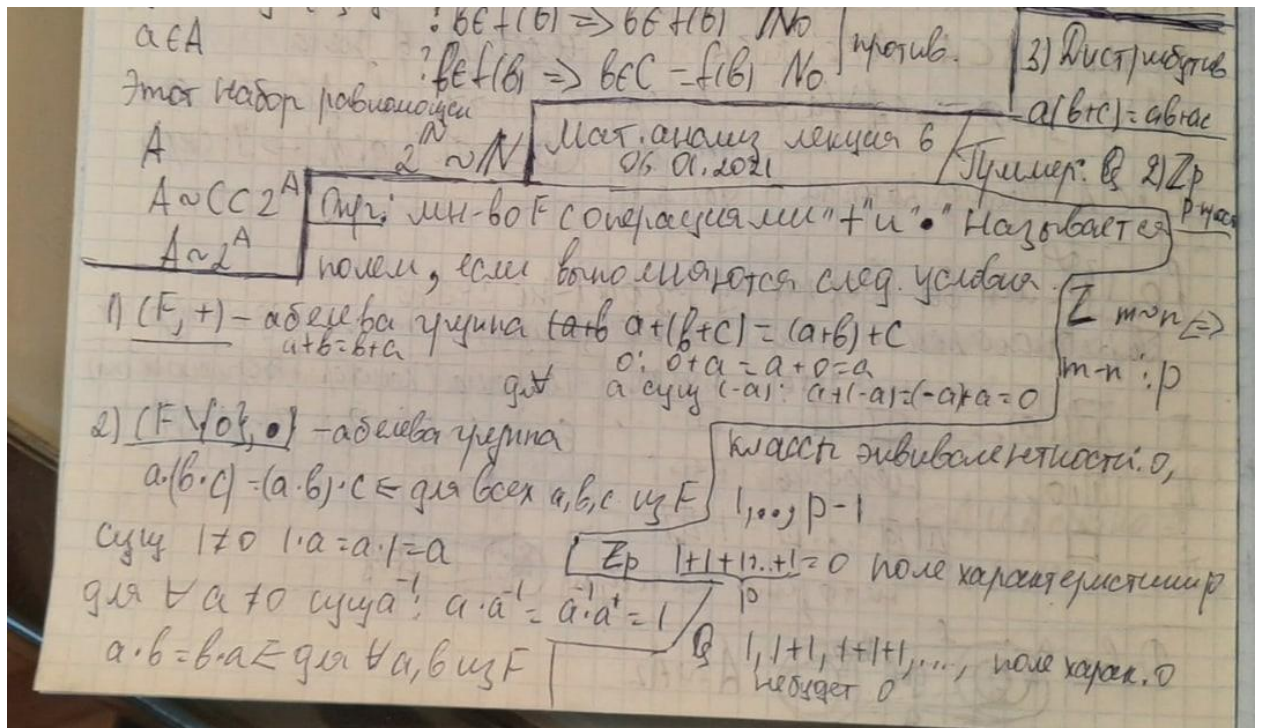 a∈A
: b∈f(b) => b∈f(b) No
? b∈f(b) => b∈C = f(b) No
против.
Этот набор равномощен
A
2^N ~ N
A~C⊂2^A
A~2^A
Мат. анализ лекция 6
06.01.2021
3) Дистрибутив
a(b+c)=ab+ac
Пример: Q 2) Zp
Опр: мн-во F с операциями "+" и "•" называется
полем, если выполняются след. условия.
1) (F, +) - абелева группа a+(b+c) = (a+b)+c
a+b=b+a
0: 0+a = a+0=a
для ∀ a сущ (-a): a+(-a)=(-a)+a=0
2) (F\{0}, •) - абелева группа
a·(b·c)=(a·b)·c ⇐ для всех a,b,c из F
сущ 1≠0 1·a=a·1=a
для ∀ a≠0 сущ a^-1: a·a^-1 = a^-1·a = 1
a·b=b·a ⇐ для ∀ a,b из F
Z m~n <=>
m-n ⋮ p
классы эквивалентности: 0,
1,..., p-1
Zp 1+1+1+...+1=0 поле характеристики p
p
Q 1, 1+1, 1+1+1, ...., поле харак. 0
не будет 0